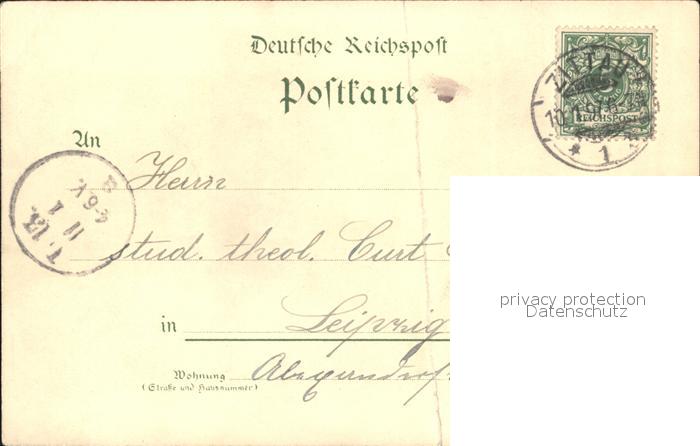 Deutsche Reichspost
Postkarte
REICHSPOST
ZITTAU
1
An
Herrn
stud. theol. Curt
in Leipzig
Wohnung
(Straße und Hausnummer)
privacy protection
Datenschutz